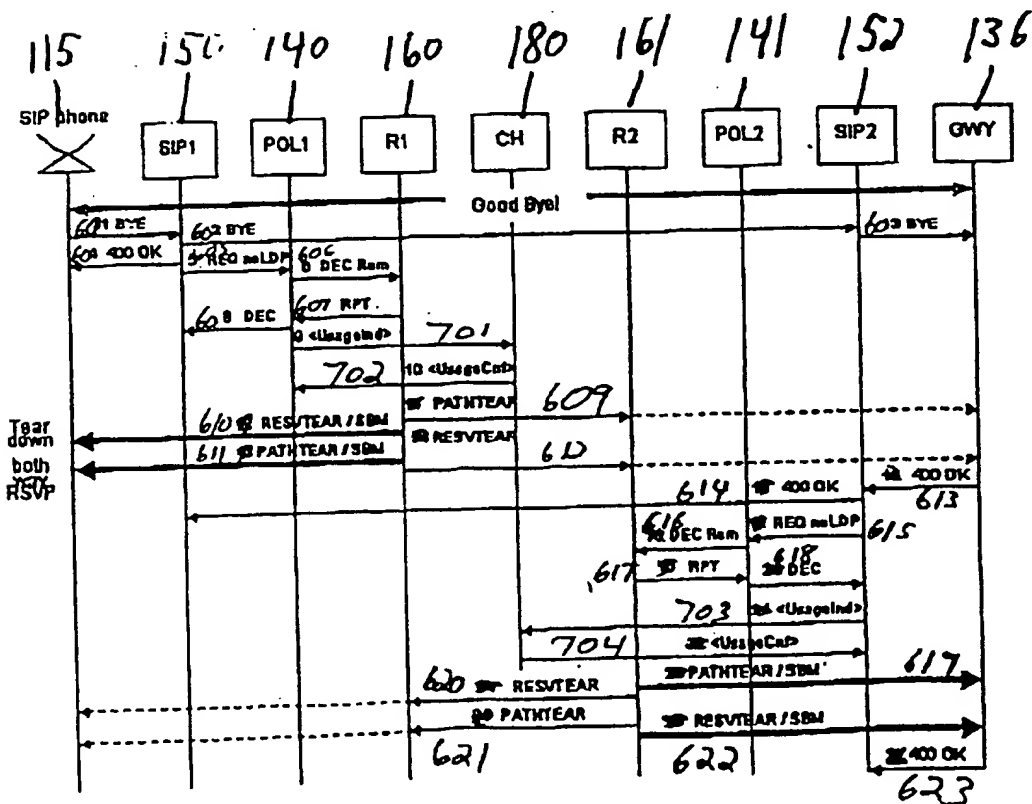 115 140 160 180 161 141 152 136
SIP phone
SIP1 POL1 R1 CH R2 POL2 SIP2 GWY
Good Bye!
BYE
602 BYE
603 BYE
604 400 OK
REQ noLDP
606 DEC Rem
607 RPT
608 DEC
<UsageInd> 701
702 10 <UsageCnf>
PATHTEAR 609
610 RESVTEAR / SBM
RESVTEAR
Tear down both way RSVP
611 PATHTEAR / SBM
612
400 OK
613
614 400 OK
616 DEC Rem
REQ noLDP
615
617 RPT
618 DEC
703 <UsageInd>
704 <UsageCnf>
PATHTEAR / SBM 617
620 RESVTEAR
PATHTEAR
RESVTEAR / SBM
621
622
400 OK
623